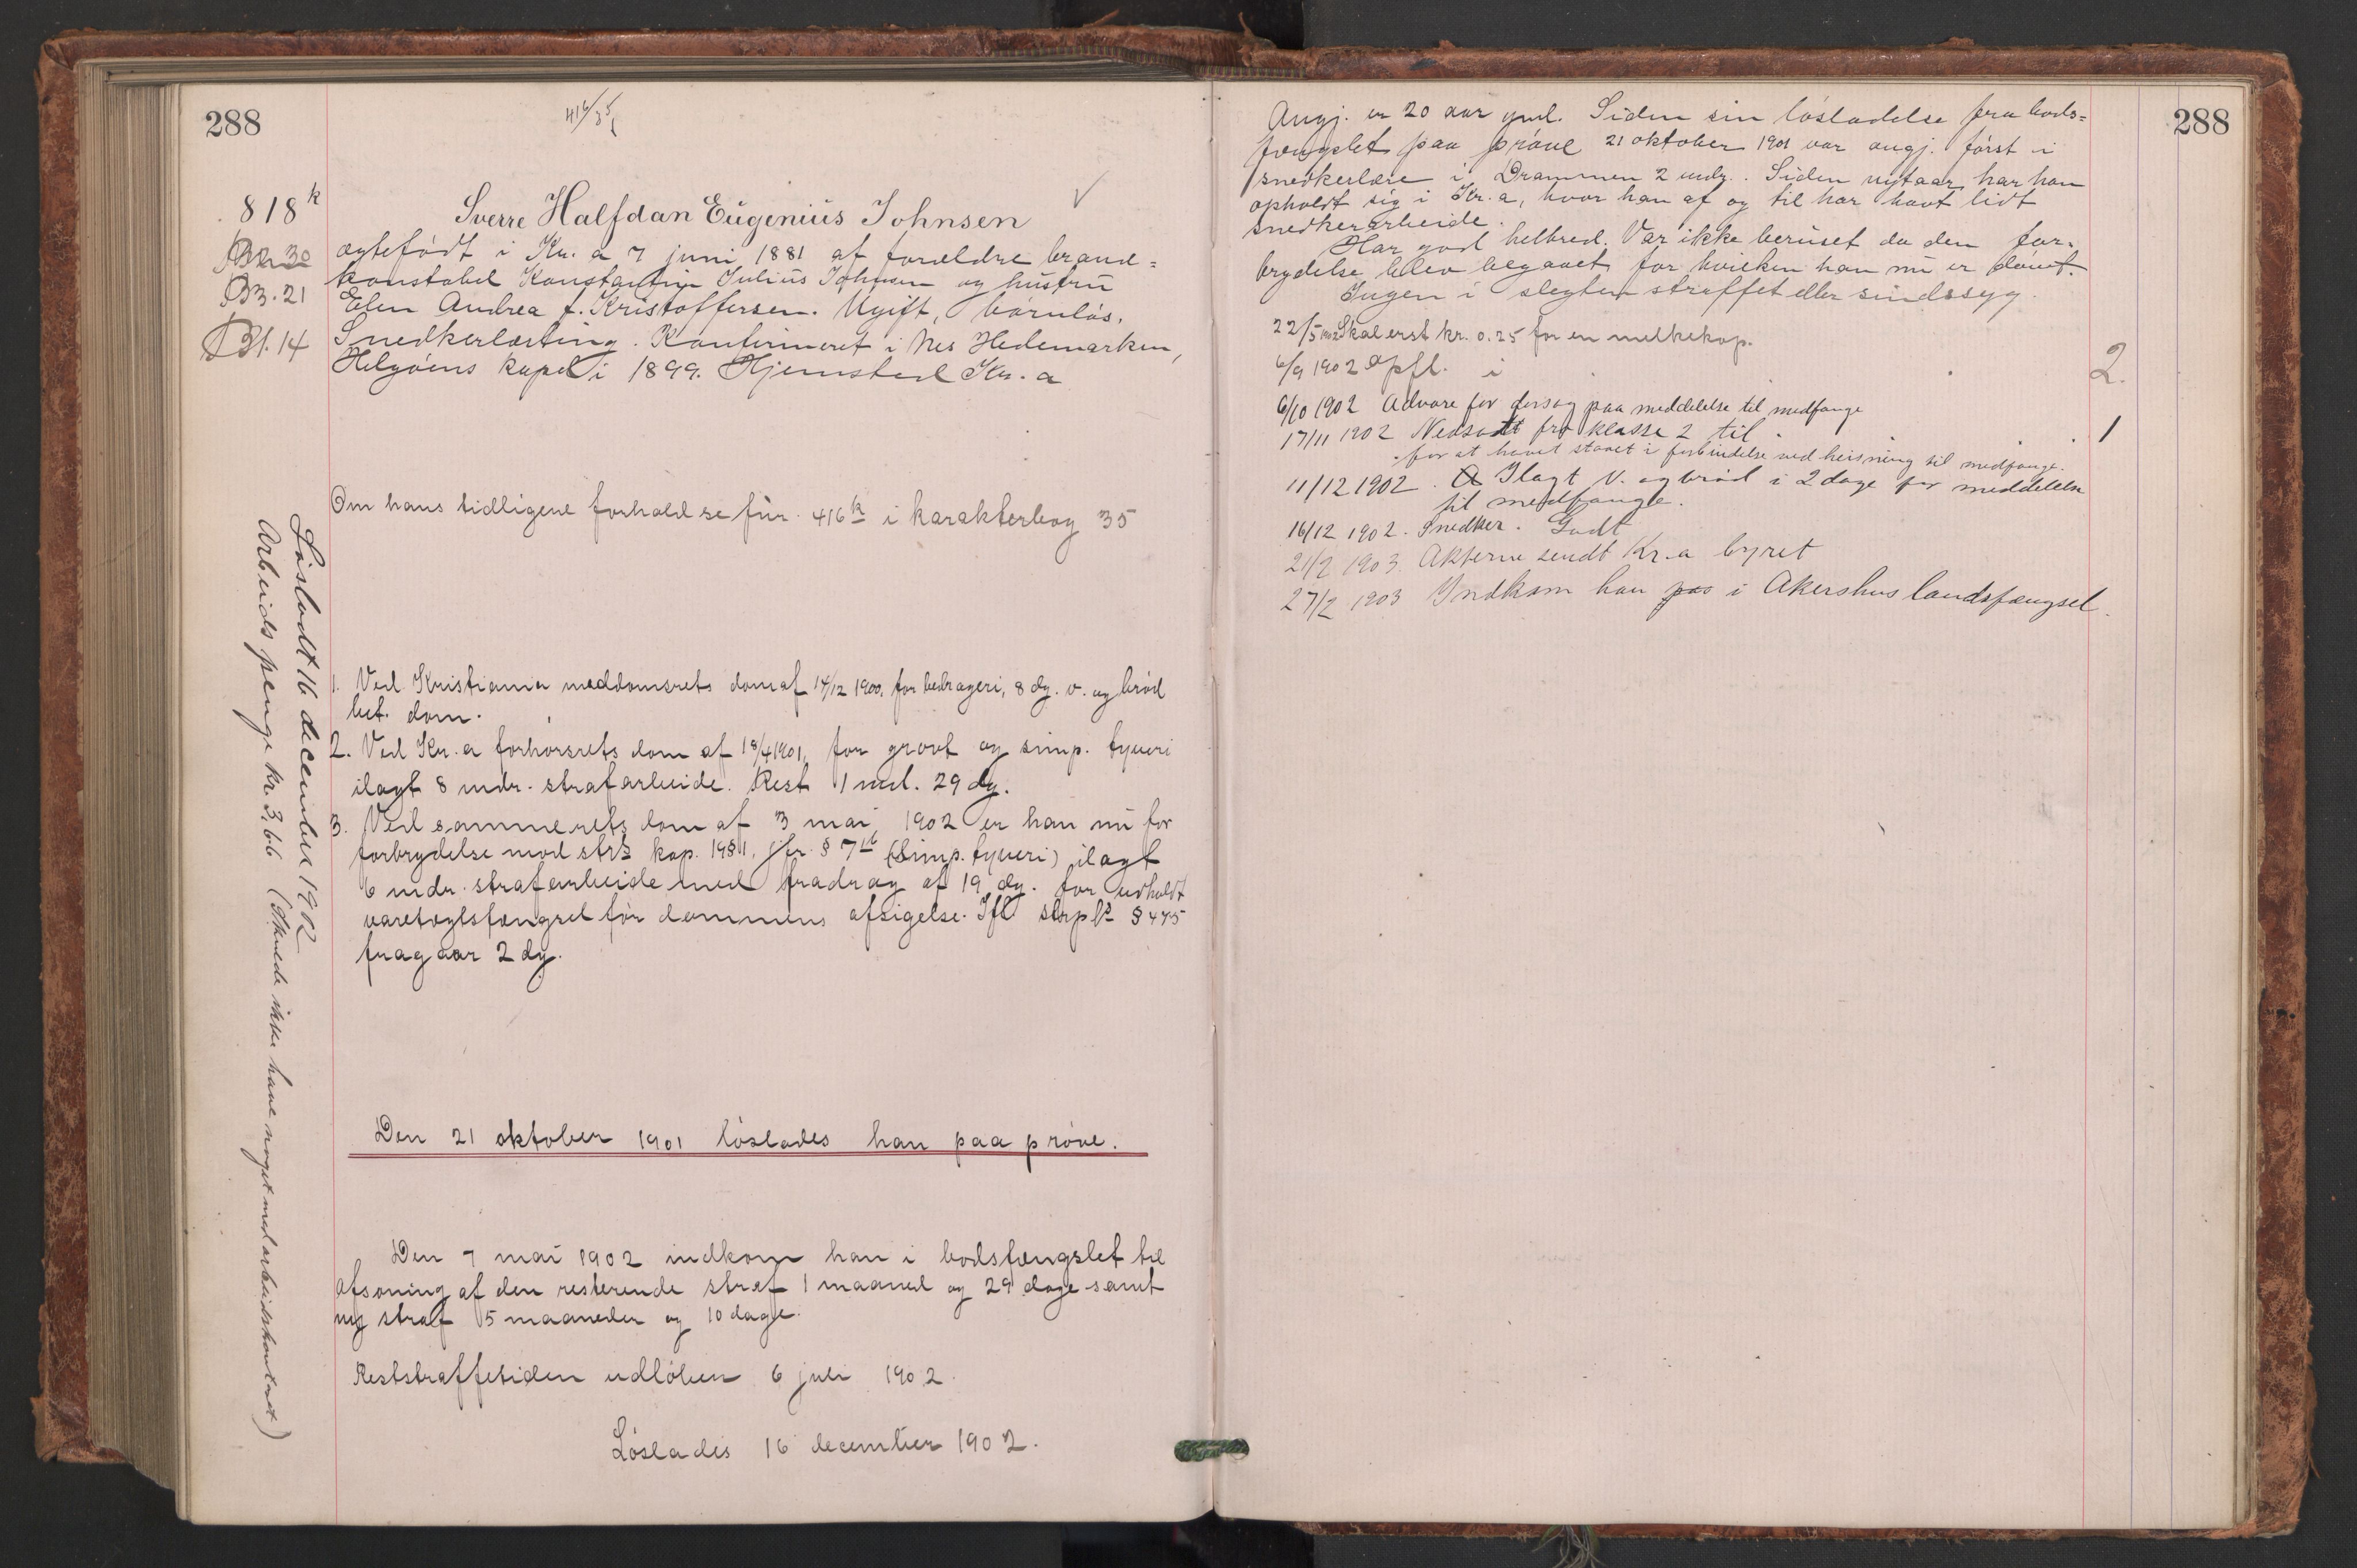 288
416/35
818 k
Br. 30
B3. 21
B1. 14
Sverre Halfdan Eugenius Johnsen
ægtefødt i Kr.a 7 juni 1881 af forældre brand=
konstabel Konstantin Julius Johnsen og hustru
Elen Andrea f. Kristoffersen. Ugift, barnløs.
Snedkerlærling. Konfirmeret i Nes Hedemarken,
Helgøens kapel i 1899. Hjemsted Kr.a
Om hans tidligere forhold se fnr. 416 k i karakterbog 35
1. Ved Kristiania meddomsrets dom af 14/12 1900, for bedrageri, 8 dg. v. og brød
bet. dom.
2. Ved Kr.a forhørsrets dom af 18/4 1901, for grovt og simp. tyveri
ilagt 8 mdr. strafarbeide. Rest 1 md. 29 dg.
3. Ved sammerets dom af 3 mai 1902 er han nu for
forbrydelse mod strl. kap. 19 § 1, jfr. § 7 (simp. tyveri) ilagt
6 mdr. strafarbeide med fradrag af 19 dg. for udholdt
varetægtsfængsel før dommens afsigelse. Ifl. strpl. § 475
fragaar 2 dg.
Den 21 oktober 1901 løslades han paa prøve.
Den 7 mai 1902 indkom han i bodsfængslet til
afsoning af den resterende straf 1 maaned og 29 dage samt
ny straf 5 maaneder og 10 dage.
Reststraffetiden udløben 6 juli 1902.
Løslades 16 december 1902.
Løsladt 16 december 1902
Arbeids penge kr. 3,66 (Ønskede ikke have noget med arbeidskontoret)
288
Angj. er 20 aar gml. Siden sin løsladelse fra bods=
fængslet paa prøve 21 oktober 1901 var angj. først i
snedkerlære i Drammen 2 mdr. Siden nytaar har han
opholdt sig i Kr.a, hvor han af og til har havt lidt
snedkerarbeide.
Har god helbred. Var ikke beruset da den for=
brydelse blev begaaet for hvilken han nu er dømt.
Ingen i slegten straffet eller sindssyg.
22/5 1902 Skal erst kr. 0.25 for en melkekop.
6/9 1902 Opfl. i 2.
6/10 1902 Advare for forsøg paa meddelelse til medfange
17/11 1902 Nedsadt fra klasse 2 til 1
for at havet staaet i forbindelse ved heisning til medfange.
11/12 1902. Ilagt V. og brød i 2 dage for meddelelse
til medfange.
16/12 1902. Snedker. Godt
21/2 1903. Akterne sendt Kr.a byret
27/2 1903 Indkom han paa i Akershus landsfængsel.